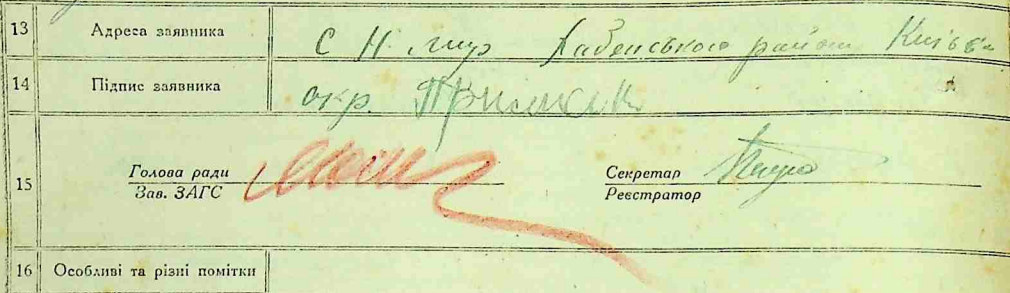 13 Адреса заявника С Н. Мир Хабенського району Київськ
14 Підпис заявника окр.
15 Голова ради Секретар
Зав. ЗАГС Реєстратор
16 Особливі та різні помітки